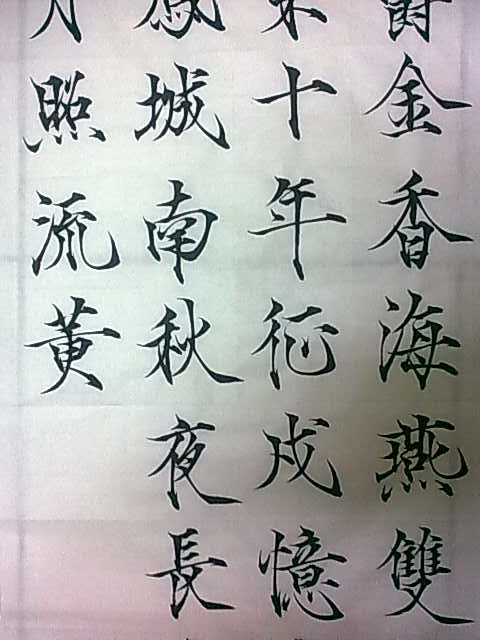 金香海燕雙
十年征戍憶
城南秋夜長
照流黃